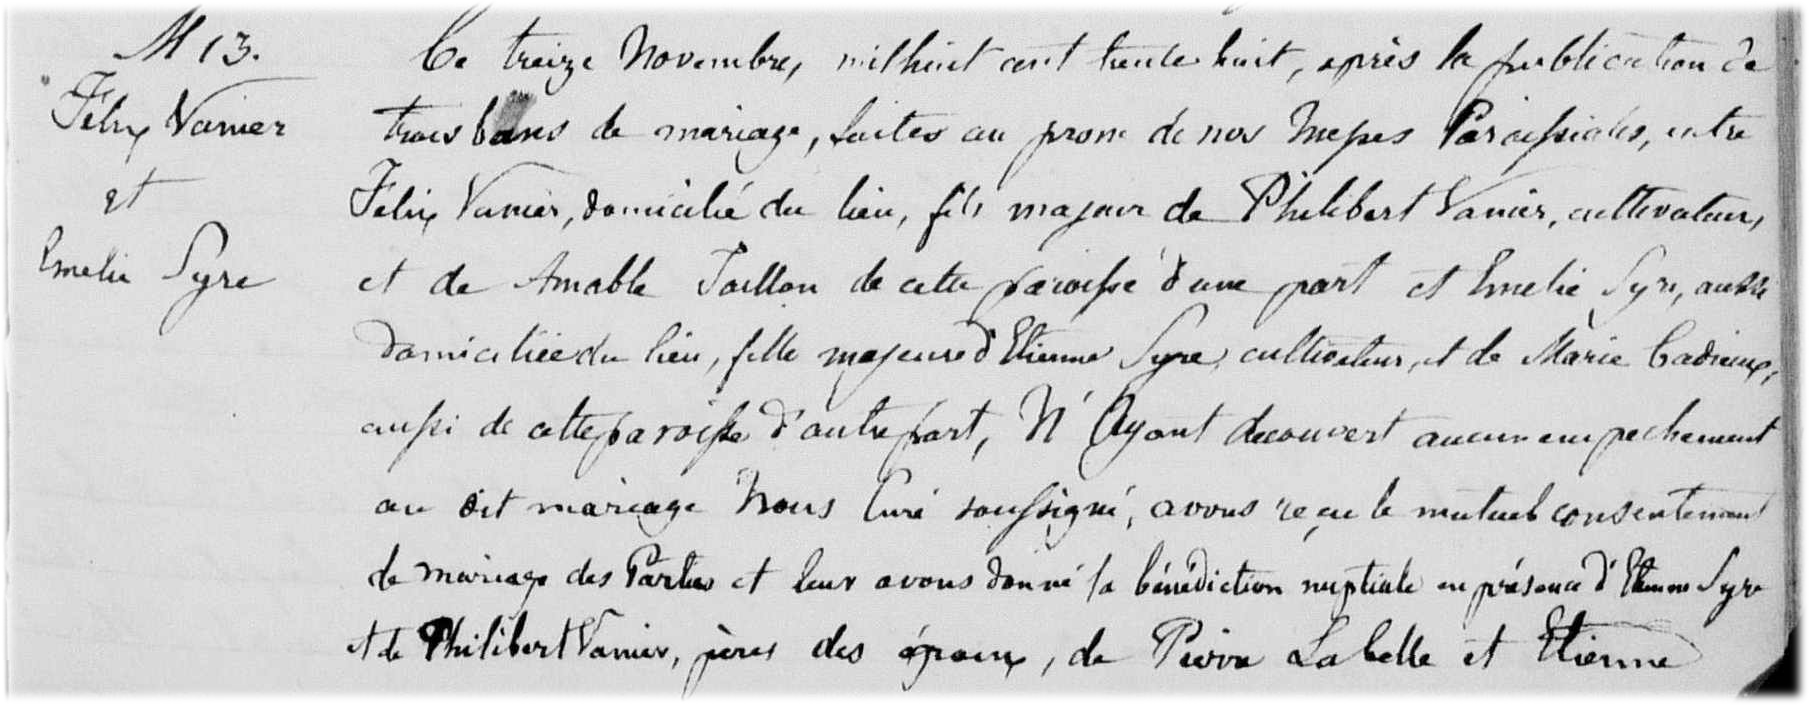 M 13.
Felix Vanier
et
Emelie Syre
Ce treize Novembre, mil huit cent trente huit, après la publication de
trois bans de mariage, faites au prone de nos Messes Paroissiales, entre
Felix Vanier, domicilié du lieu, fils majeur de Philibert Vanier, cultivateur,
et de Amable Taillon de cette paroisse d'une part et Emelie Syre, aussi
domiciliée du lieu, fille majeure d'Etienne Syre, cultivateur, et de Marie Cadieux,
aussi de cette paroisse d'autre part, N'Ayant decouvert aucun empechement
au dit mariage Nous Curé soussigné, avons reçu le mutuel consentement
de mariage des Parties et leur avons donné la bénédiction nuptiale en présence d'Etienne Syre
et de Philibert Vanier, pères des époux, de Pierre Labelle et Etienne